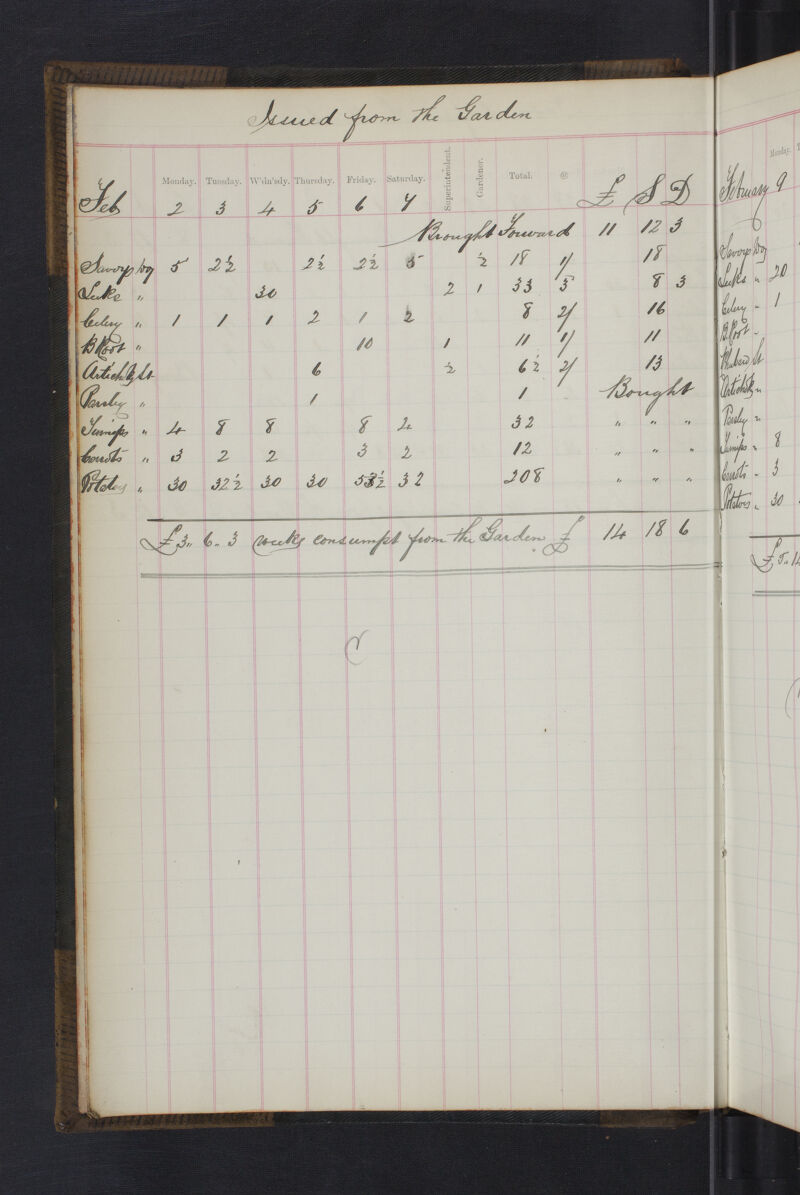 Issued from the Garden
Monday. Tuesday. W'dn'sdy. Thursday. Friday. Saturday. Superintendent. Gardener. Total. @
Feb 2 3 4 5 6 7 £ S D
Brought Forward 11 12 3
Savoys Dog 5 2½ 2½ 2½ 5 ½ 18 1/ 18
Leeks " 30 2 1 33 3 8 3
Celery " 1 1 1 2 1 2 8 2/ 16
B Root " 10 1 11 1/ 11
Artichk St 6 ½ 6½ 2/ 13
Parsley " 1 1 Bought
Turnips " 4 8 8 8 4 32 " " "
Carrots " 3 2 2 3 2 12 " " "
Potatoes " 30 32½ 30 30 53½ 32 208 " " "
£3.. 6.. 3 weeks consumpt from the Garden £ 14 18 6
Monday.
February 9
Savoys Dog
Leeks " 20
Celery " 1
B. Root "
Rhubarb St
Artichk "
Parsley "
Turnips " 8
Carrots " 3
Potatoes " 30
£5..